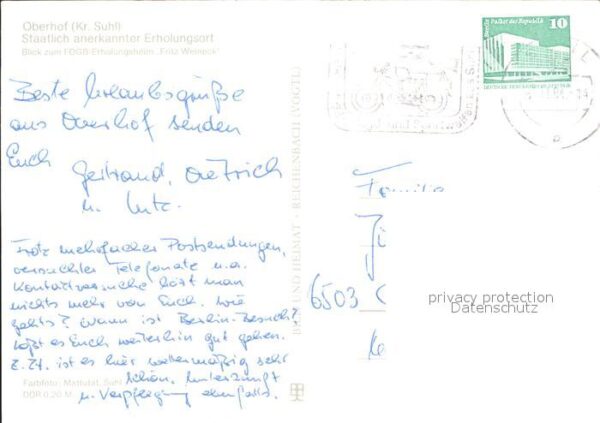 Oberhof (Kr. Suhl)
Staatlich anerkannter Erholungsort
Blick zum FDGB-Erholungsheim „Fritz Weineck"
Beste Urlaubsgrüße
aus Oberhof senden
Euch
Gertraud, Dietrich
u. Lutz.
Trotz mehrfacher Postsendungen,
versuchter Telefonate u.a.
Kontaktversuche hört man
nichts mehr von Euch. Wie
gehts? Wann ist Berlin-Besuch?
Laßt es Euch weiterhin gut gehen.
Z.Zt. ist es hier wettermäßig sehr
schön, Unterkunft
u. Verpflegung ebenfalls.
Farbfoto: Mattutat, Suhl
DDR 0,20 M
BILD UND HEIMAT · REICHENBACH (VOGTL)
Berlin Palast der Republik
10
DEUTSCHE DEMOKRATISCHE REPUBLIK
und Sportwaffen aus Suhl
Familie
Ji
6503
privacy protection
Datenschutz